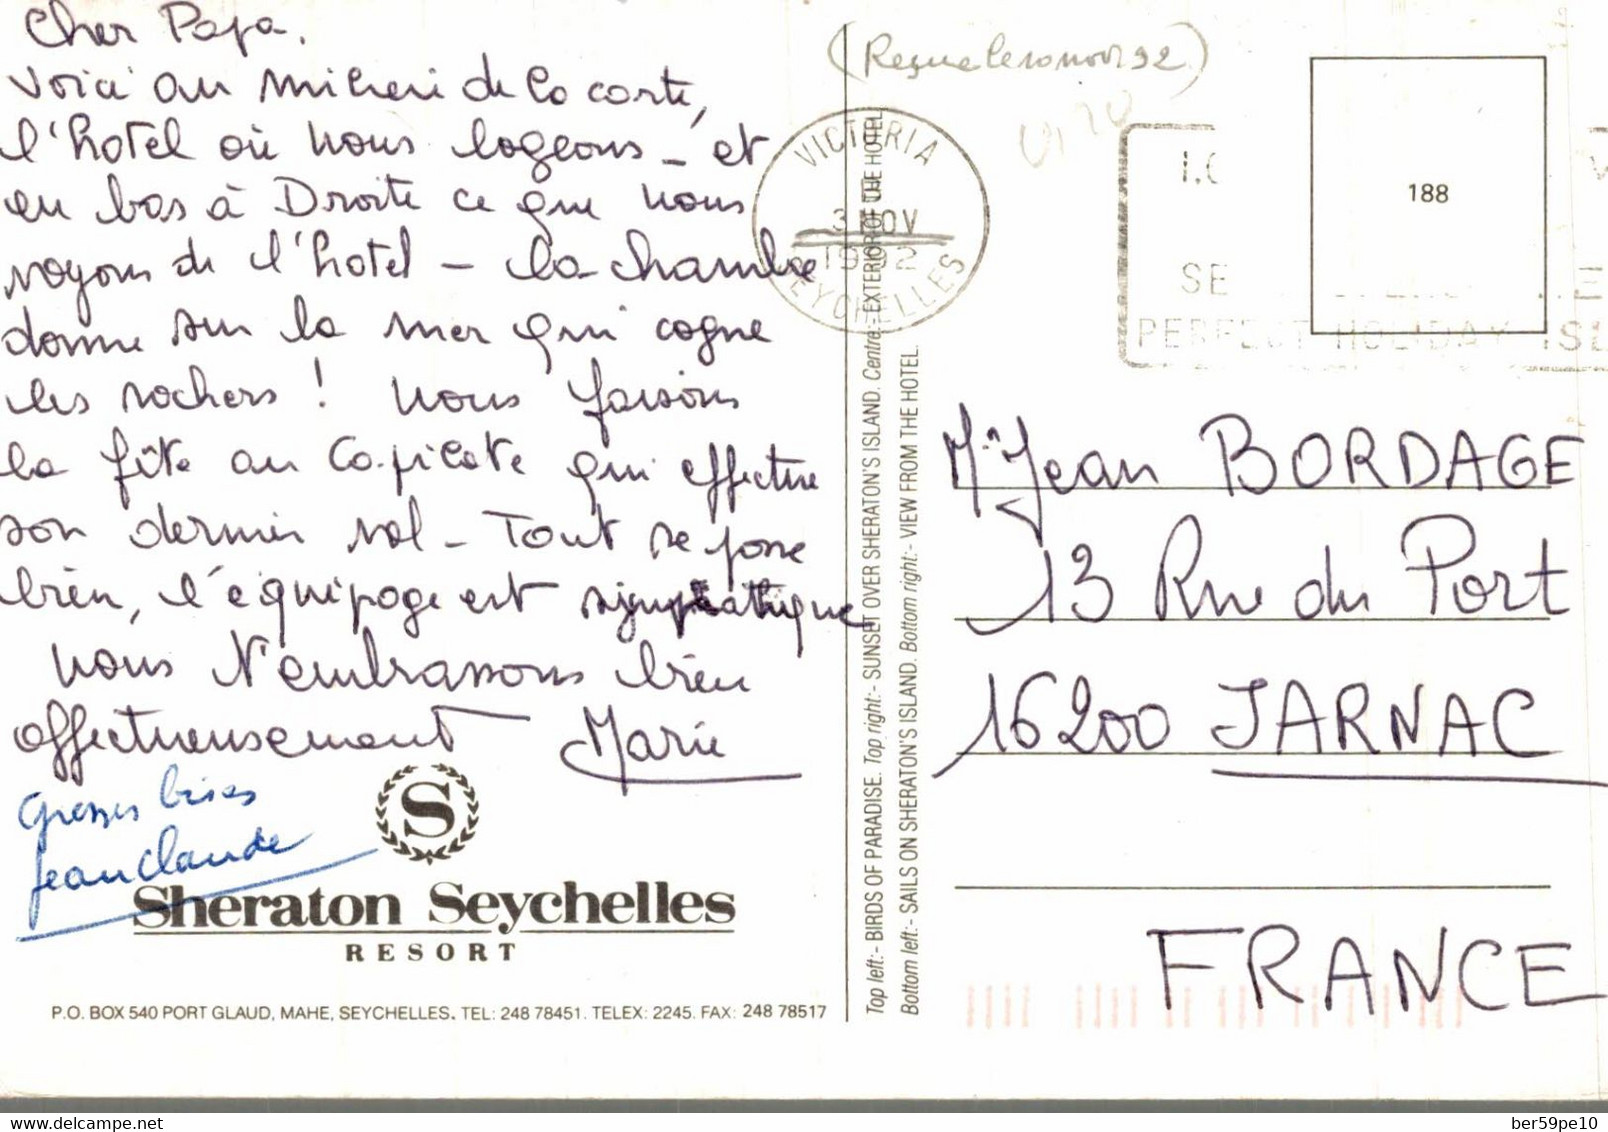 Cher Papa.
Voici au milieu de la carte,
l'hotel où nous logeons - et
en bas à Droite ce que nous
voyons de l'hotel - la chambre
donne sur la mer qui cogne
les rochers ! Nous faisons
la fête au Co-pilote qui effectue
son dernier vol - Tout se passe
bien, l'équipage est sympathique
Nous t'embrassons bien
affectueusement Marie
Grosses bises
Jean Claude
S
Sheraton Seychelles
RESORT
P.O. BOX 540 PORT GLAUD, MAHE, SEYCHELLES. TEL: 248 78451. TELEX: 2245. FAX: 248 78517
Top left:- BIRDS OF PARADISE. Top right:- SUNSET OVER SHERATON'S ISLAND. Centre:- EXTERIOR OF THE HOTEL.
Bottom left:- SAILS ON SHERATON'S ISLAND. Bottom right:- VIEW FROM THE HOTEL.
(Reçue le 10 nov 92)
VICTORIA
3 NOV
1992
SEYCHELLES
SE
PERFECT HOLIDAY ISL
188
Mr Jean BORDAGE
13 Rue du Port
16200 JARNAC
FRANCE
ber59pe10